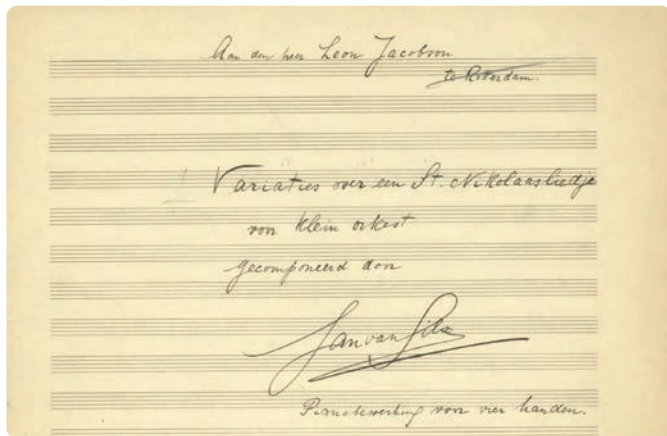 Aan den heer Leon Jacobson
te Rotterdam.
Variaties over een St. Nikolaasliedje
voor klein orkest
gecomponeerd door
Jan van Gilse
Pianobewerking voor vier handen.